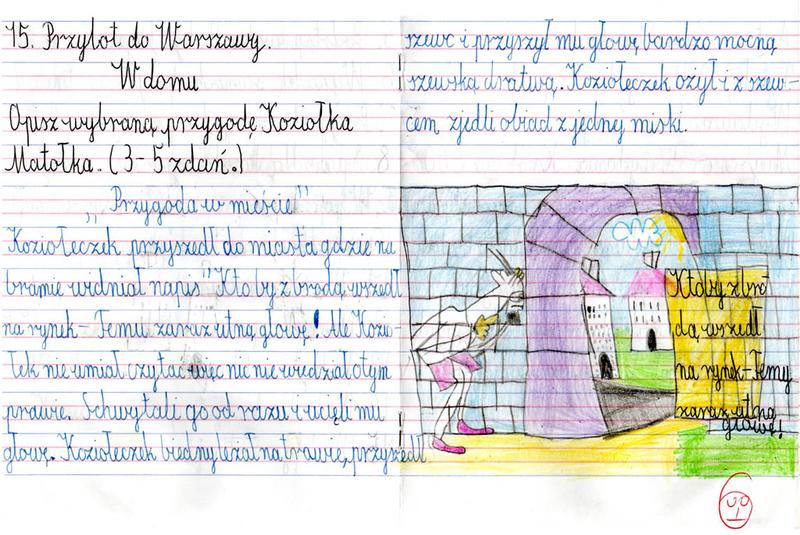 15. Przylot do Warszawy.
W domu
Opisz wybraną przygodę Koziołka
Matołka. (3-5 zdań.)
„Przygoda w mieście"
Koziołeczek przyszedł do miasta gdzie na
bramie widniał napis "Kto by z brodą wszedł
na rynek - Temu zaraz utną głowę! Ale Kozio-
łek nie umiał czytać więc nic nie wiedział o tym
prawie. Schwytali go od razu i ucięli mu
głowę. Koziołeczek biedny leżał na trawie, przyszedł
szewc i przyszył mu głowę bardzo mocną
szewską dratwą. Koziołeczek ożył i z szew-
cem zjedli obiad z jednej miski.
Któby z bro
dą wszedł
na rynek-Temy
zaraz utną
głowę!